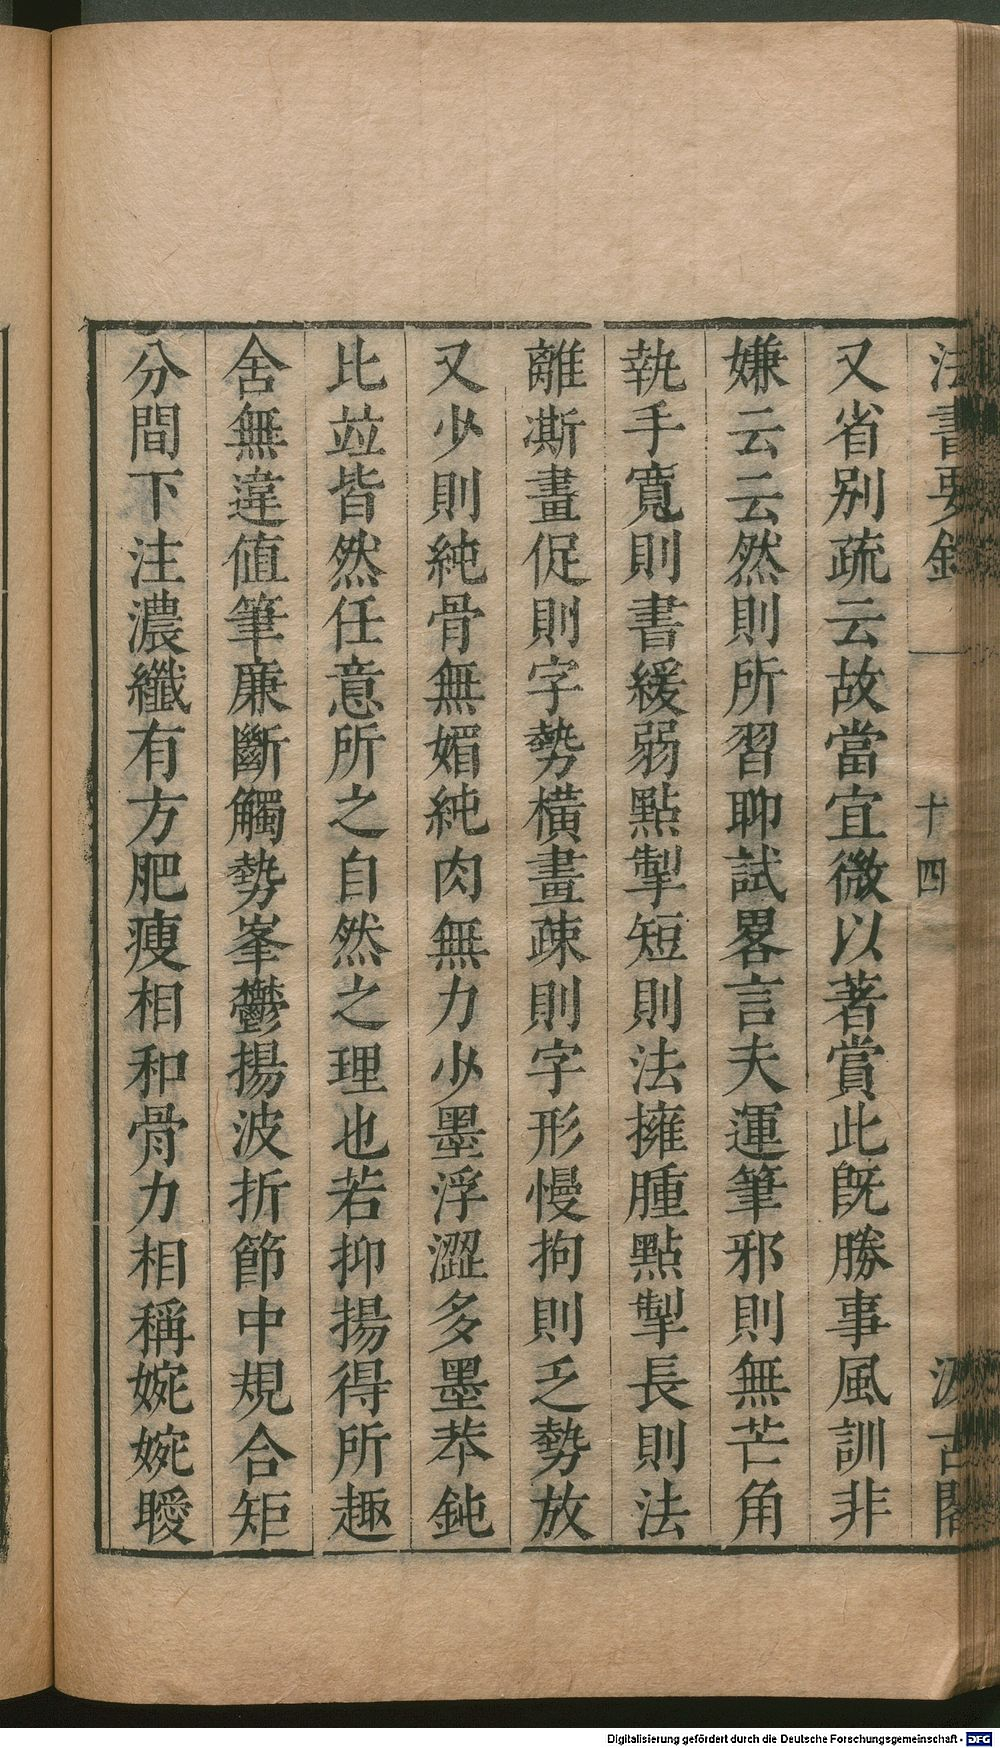 法書要錄 一 十四 汲古閣
又省別疏云故當宜微以著賞此旣勝事風訓非
嫌云云然則所習聊試畧言夫運筆邪則無芒角
執手寬則書緩弱點掣短則法擁腫點掣長則法
離澌畫促則字勢橫畫疎則字形慢拘則乏勢放
又少則純骨無媚純肉無力少墨浮澀多墨笨鈍
比竝皆然任意所之自然之理也若抑揚得所趣
舍無違値筆廉斷觸勢峯鬱揚波折節中規合矩
分間下注濃纖有方肥瘦相和骨力相稱婉婉曖
Digitalisierung gefördert durch die Deutsche Forschungsgemeinschaft - DFG